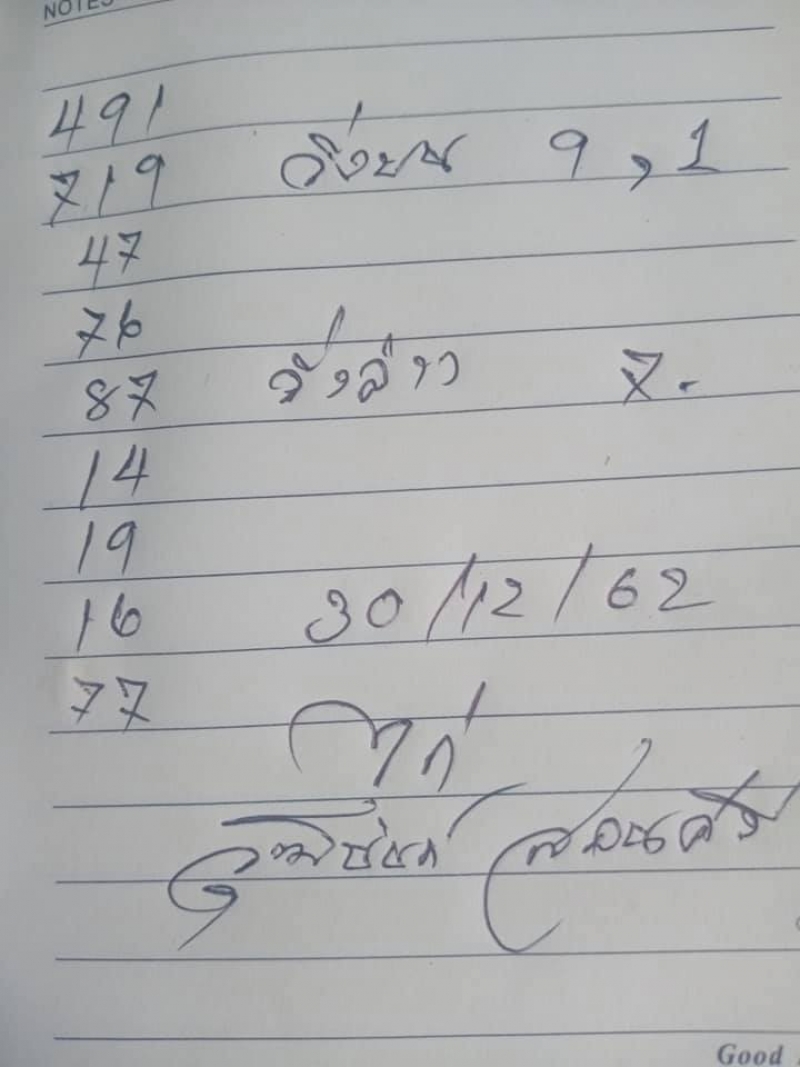 NOTES
491
719 วิ่งบน 9,1
47
76
87 วิ่งล่าง 7.
14
19
16 30/12/62
77
ไก่
Good